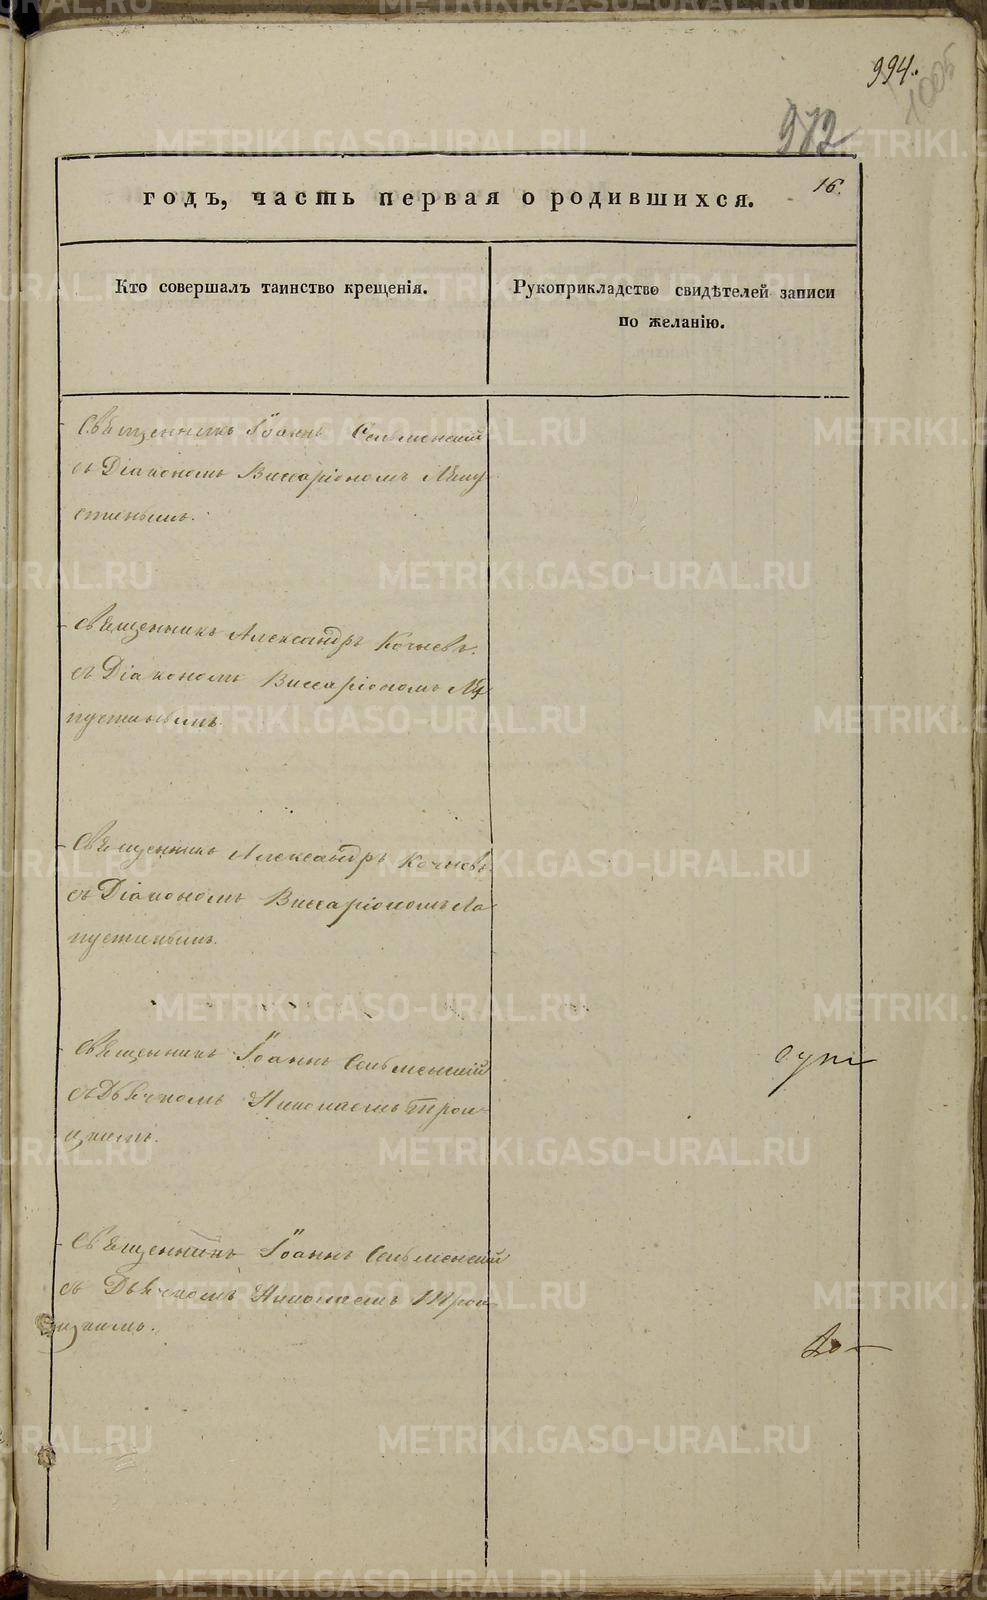 994.
1005
982
16.
годъ, часть первая о родившихся.
Кто совершалъ таинство крещенія.
Рукоприкладство свидѣтелей записи
по желанію.
Священникъ Іоаннъ Сельменскій
съ Діакономъ Виссаріономъ Лапу
стинымъ.
Священникъ Александръ Кочневъ.
съ Діакономъ Виссаріономъ Ла
пустинымъ.
Священникъ Александръ Кочневъ
съ Діакономъ Виссаріономъ Ла
пустинымъ.
Священникъ Іоаннъ Сельменскій
съ Дьячкомъ Николаемъ Трои-
цкимъ.
Священникъ Іоаннъ Сельменскій
съ Дьячкомъ Николаемъ Трои-
цкимъ.
METRIKI.GASO-URAL.RU